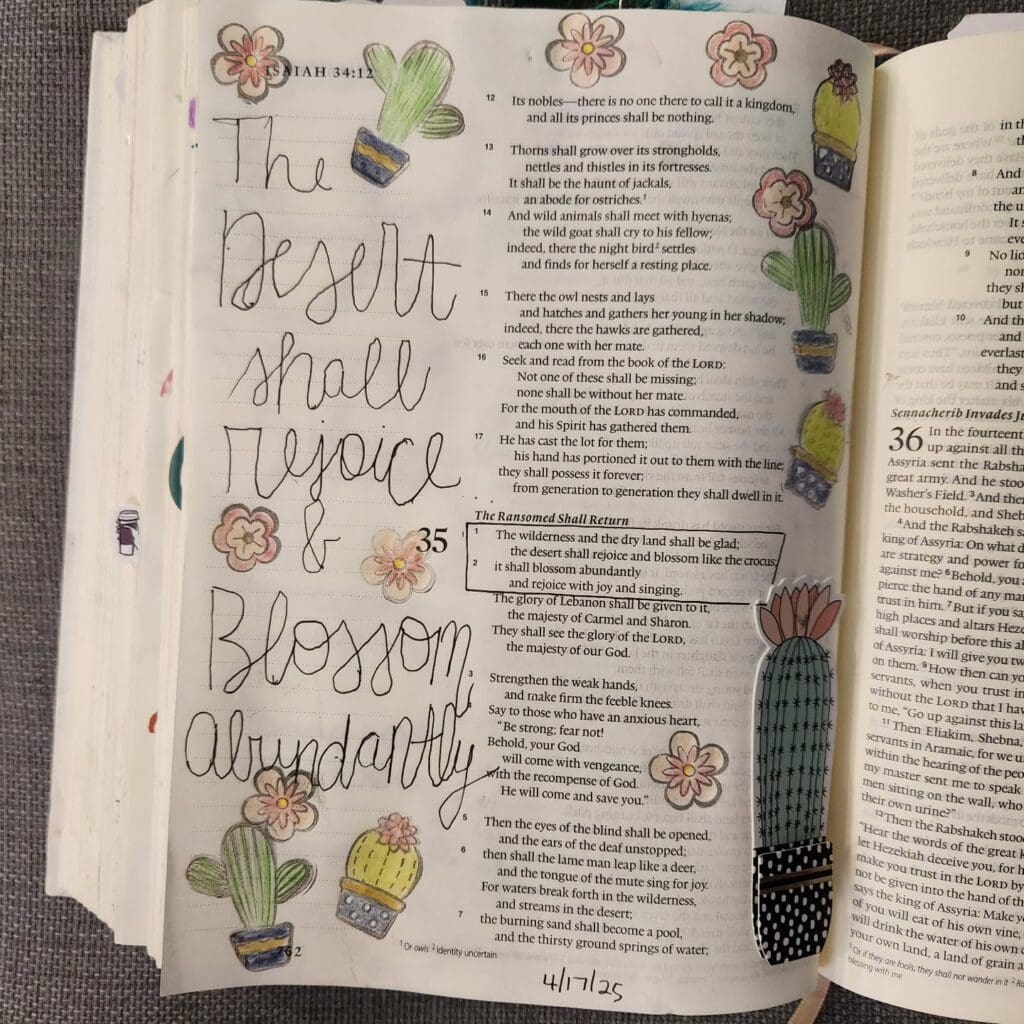 ISAIAH 34:12
The
Desert
shall
rejoice
&
Blossom
Abundantly
12 Its nobles—there is no one there to call it a kingdom,
and all its princes shall be nothing.
13 Thorns shall grow over its strongholds,
nettles and thistles in its fortresses.
It shall be the haunt of jackals,
an abode for ostriches.1
14 And wild animals shall meet with hyenas;
the wild goat shall cry to his fellow;
indeed, there the night bird2 settles
and finds for herself a resting place.
15 There the owl nests and lays
and hatches and gathers her young in her shadow;
indeed, there the hawks are gathered,
each one with her mate.
16 Seek and read from the book of the LORD:
Not one of these shall be missing;
none shall be without her mate.
For the mouth of the LORD has commanded,
and his Spirit has gathered them.
17 He has cast the lot for them;
his hand has portioned it out to them with the line;
they shall possess it forever;
from generation to generation they shall dwell in it.
The Ransomed Shall Return
35
1 The wilderness and the dry land shall be glad;
the desert shall rejoice and blossom like the crocus;
2 it shall blossom abundantly
and rejoice with joy and singing.
The glory of Lebanon shall be given to it,
the majesty of Carmel and Sharon.
They shall see the glory of the LORD,
the majesty of our God.
3 Strengthen the weak hands,
and make firm the feeble knees.
4 Say to those who have an anxious heart,
"Be strong; fear not!
Behold, your God
will come with vengeance,
with the recompense of God.
He will come and save you."
5 Then the eyes of the blind shall be opened,
and the ears of the deaf unstopped;
6 then shall the lame man leap like a deer,
and the tongue of the mute sing for joy.
For waters break forth in the wilderness,
and streams in the desert;
7 the burning sand shall become a pool,
and the thirsty ground springs of water;
1 Or owls 2 Identity uncertain
762
4/17/25
in th
8 And
an
the u
It s
eve
9 No lid
nor
they sh
but
10 And th
and
everlast
they
and s
Sennacherib Invades J
36 In the fourteenth
up against all th
Assyria sent the Rabsha
great army. And he stoo
Washer's Field. 3 And ther
the household, and Sheb
4 And the Rabshakeh s
king of Assyria: On what d
are strategy and power fo
against me? 6 Behold, you a
pierce the hand of any ma
trust in him. 7 But if you sa
high places and altars Heze
shall worship before this al
of Assyria: I will give you tw
on them. 9 How then can yo
servants, when you trust in
without the LORD that I hav
to me, "Go up against this la
11 Then Eliakim, Shebna,
servants in Aramaic, for we u
within the hearing of the peo
my master sent me to speak
men sitting on the wall, who
their own urine?"
13 Then the Rabshakeh stoo
"Hear the words of the great k
let Hezekiah deceive you, for h
make you trust in the LORD by
not be given into the hand of th
says the king of Assyria: Make yo
of you will eat of his own vine,
will drink the water of his own c
your own land, a land of grain a
1 Or if they are fools, they shall not wander in it 2 Ra
blessing with me